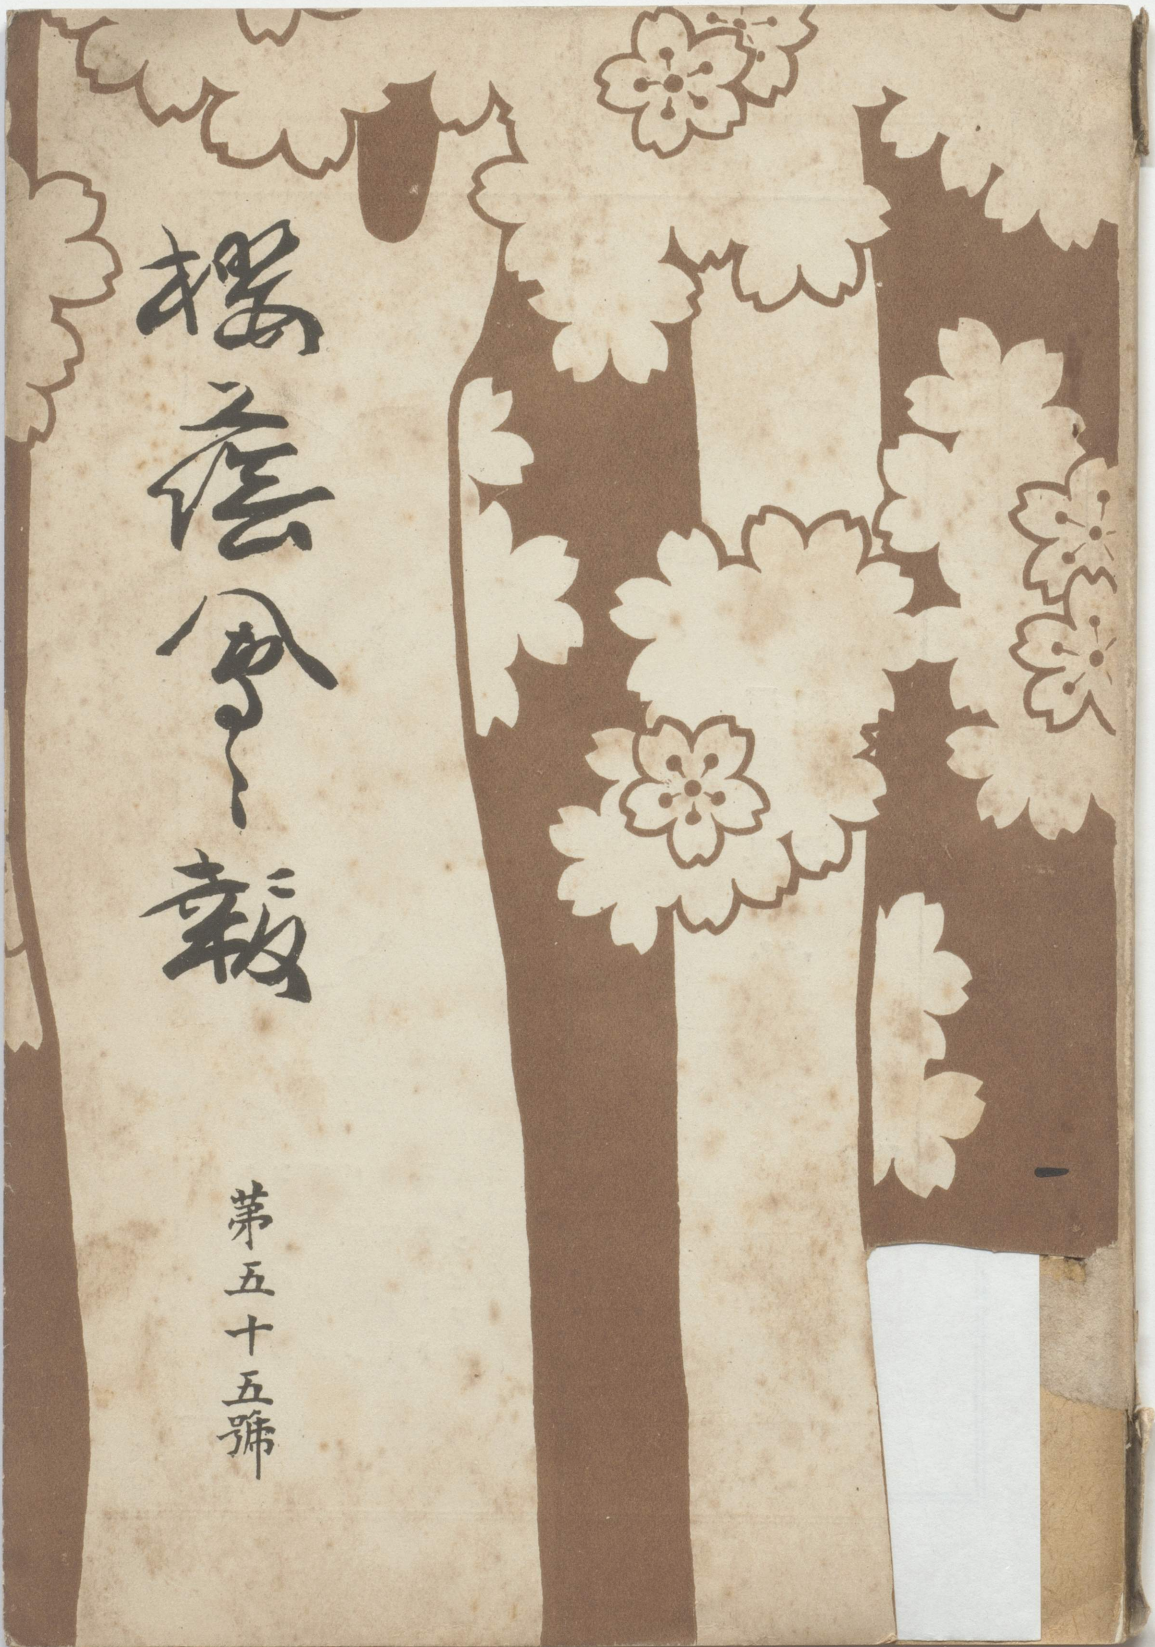 櫻蔭會々報
第五十五號